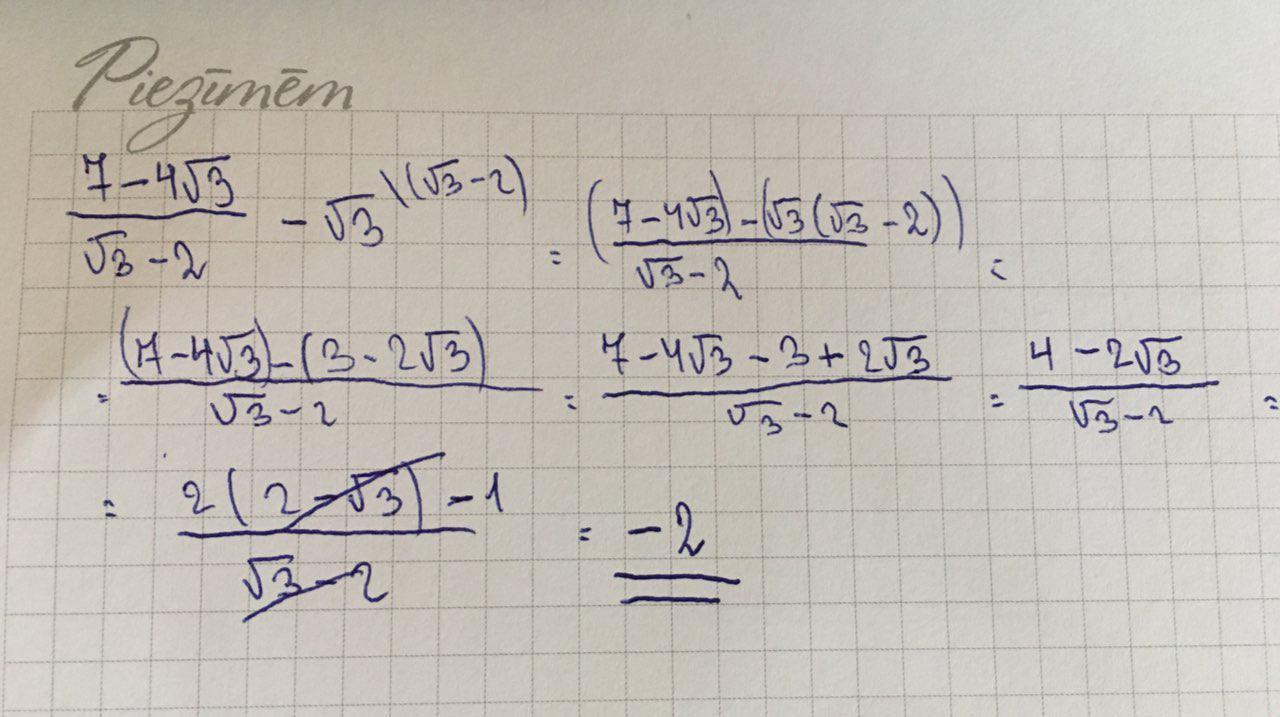 Piezīmēm
(7 - 4√3)/(√3 - 2) - √3 \(√3 - 2) = ((7 - 4√3) - (√3(√3 - 2)))/(√3 - 2) =
= ((7 - 4√3) - (3 - 2√3))/(√3 - 2) = (7 - 4√3 - 3 + 2√3)/(√3 - 2) = (4 - 2√3)/(√3 - 2) =
= 2(2 - √3) - 1/(√3 - 2) = -2